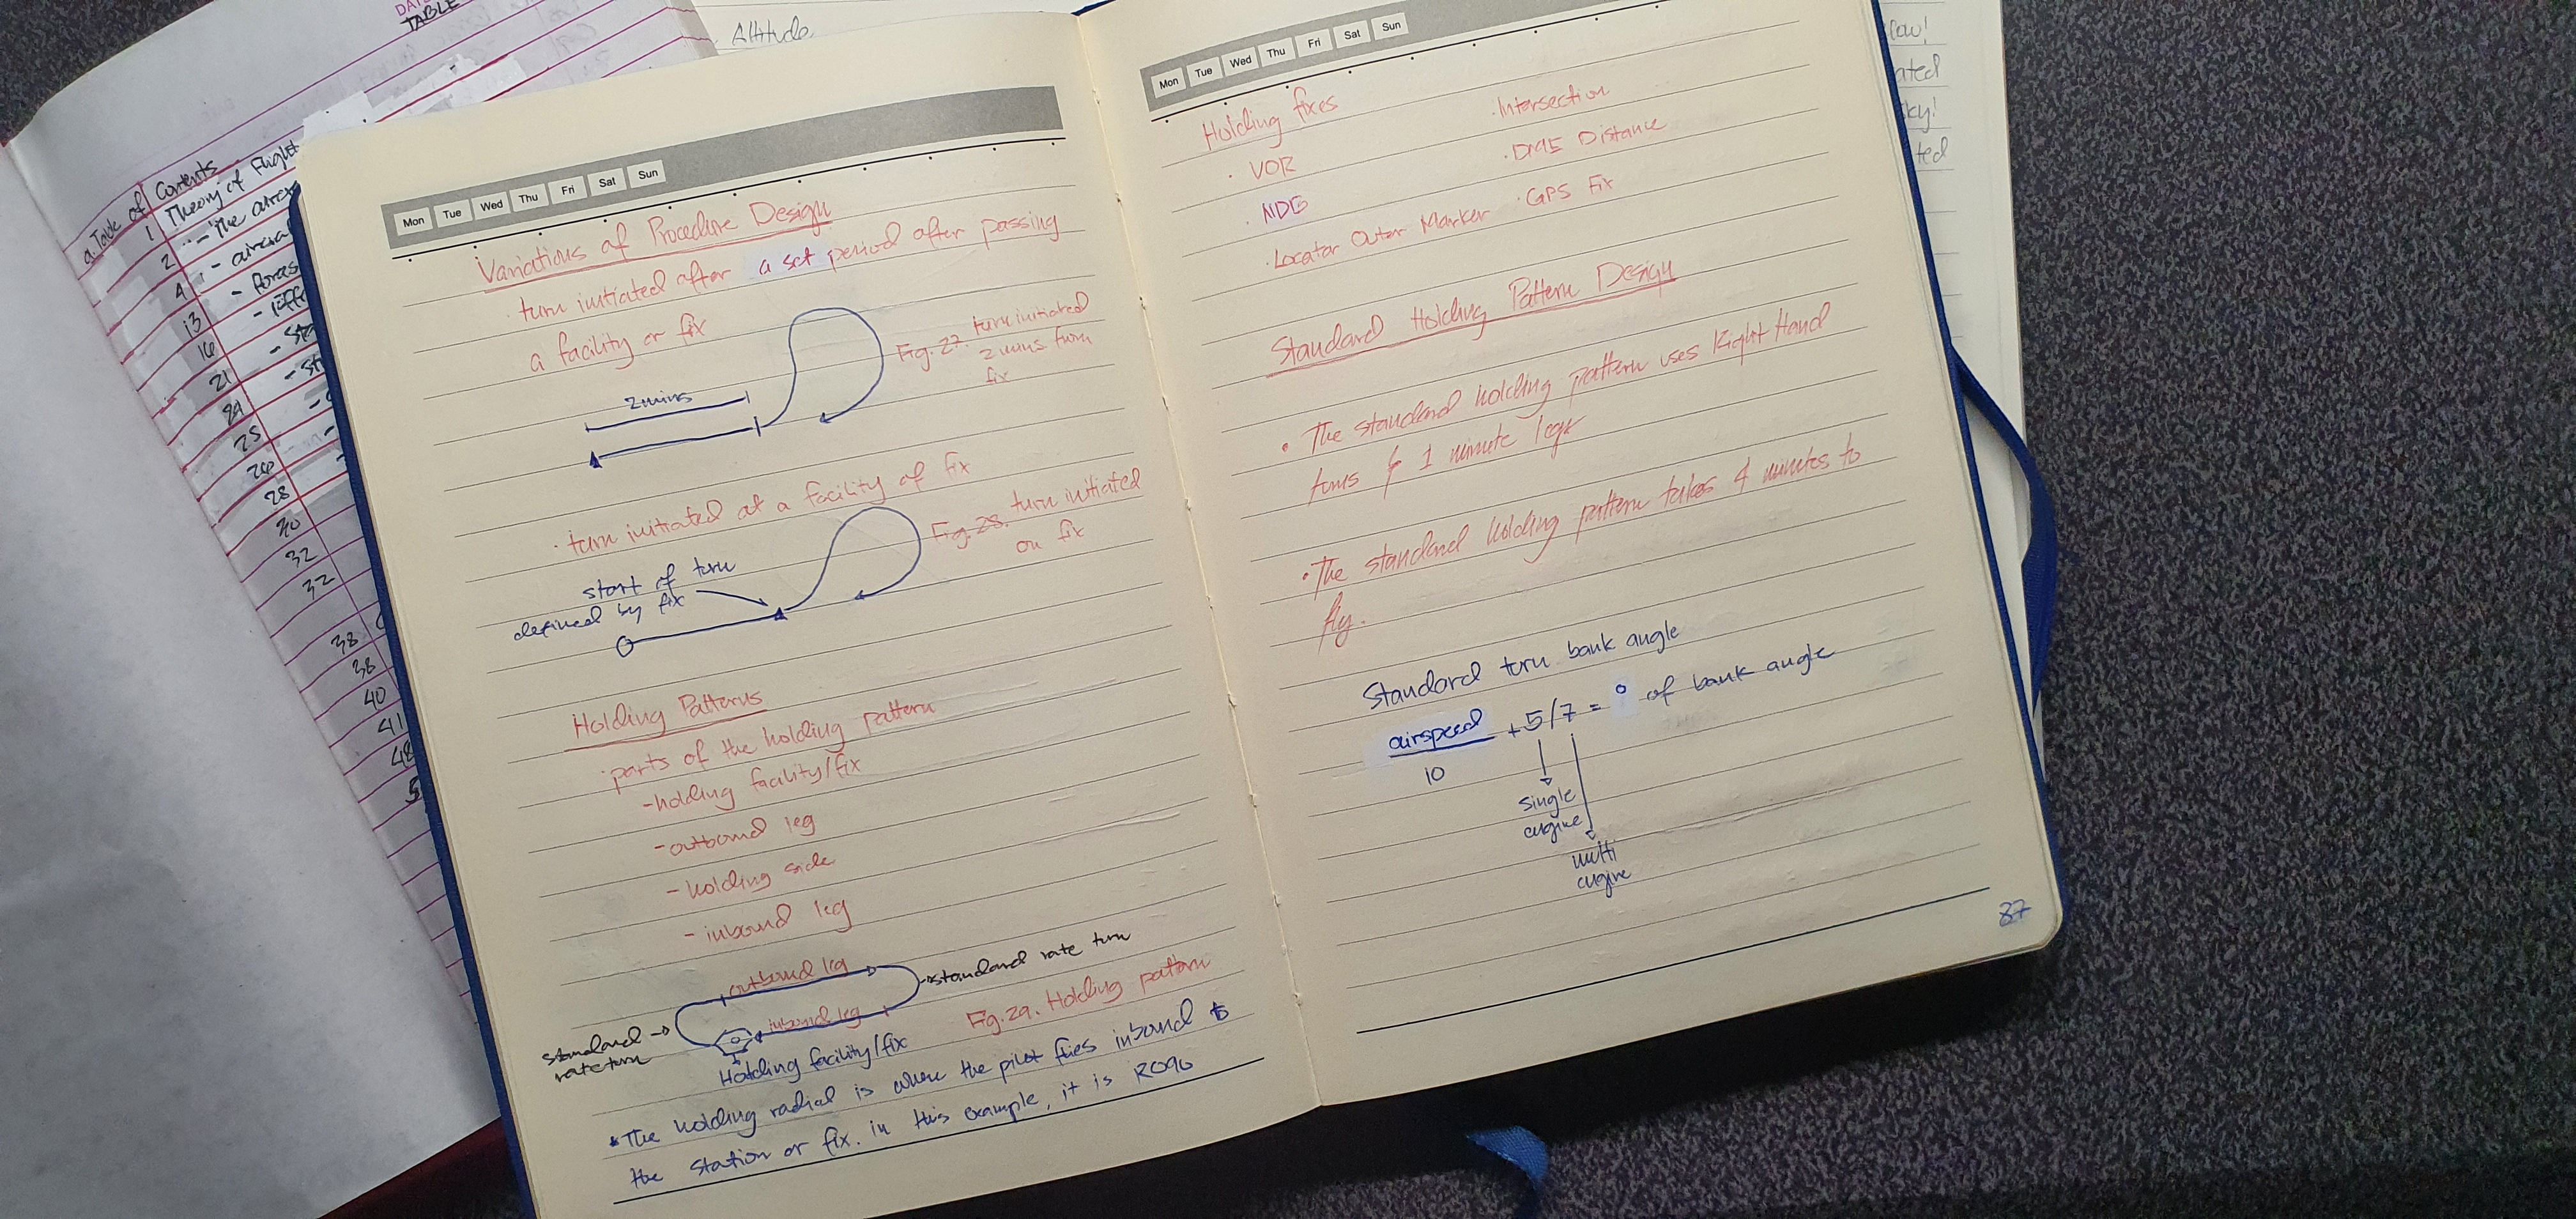 DAT
TABLE
a. Table of Contents
1 Theory of Flight
2 - The aircra
4 - aircra
13 - forces
16
21
24
25
26
28
30
32
32
38
38
40
41
48
5
Altitude
Mon Tue Wed Thu Fri Sat Sun
Variations of Procedure Design
· turn initiated after a set period after passing
a facility or fix
2 mins
Fig. 27. turn initiated
2 mins from
fix
· turn initiated at a facility of fix
start of turn
defined by fix
Fig. 28. turn initiated
on fix
Holding Patterns
· parts of the holding pattern
- holding facility/fix
- outbound leg
- holding side
- inbound leg
outbound leg
standard rate turn
inbound leg
standard
rate turn
Holding facility/fix
Fig. 29. Holding pattern
* The holding radial is where the pilot flies inbound to
the station or fix. in this example, it is R090
Mon Tue Wed Thu Fri Sat Sun
Holding fixes
· VOR
· NDB
· Locator Outer Marker
· Intersection
· DME Distance
· GPS Fix
Standard Holding Pattern Design
• The standard holding pattern uses Right Hand
turns & 1 minute legs
• The standard holding pattern takes 4 minutes to
fly.
Standard turn bank angle
airspeed
10
+5/7 = ° of bank angle
single
engine
multi
engine
87
law!
ated
ky!
ted